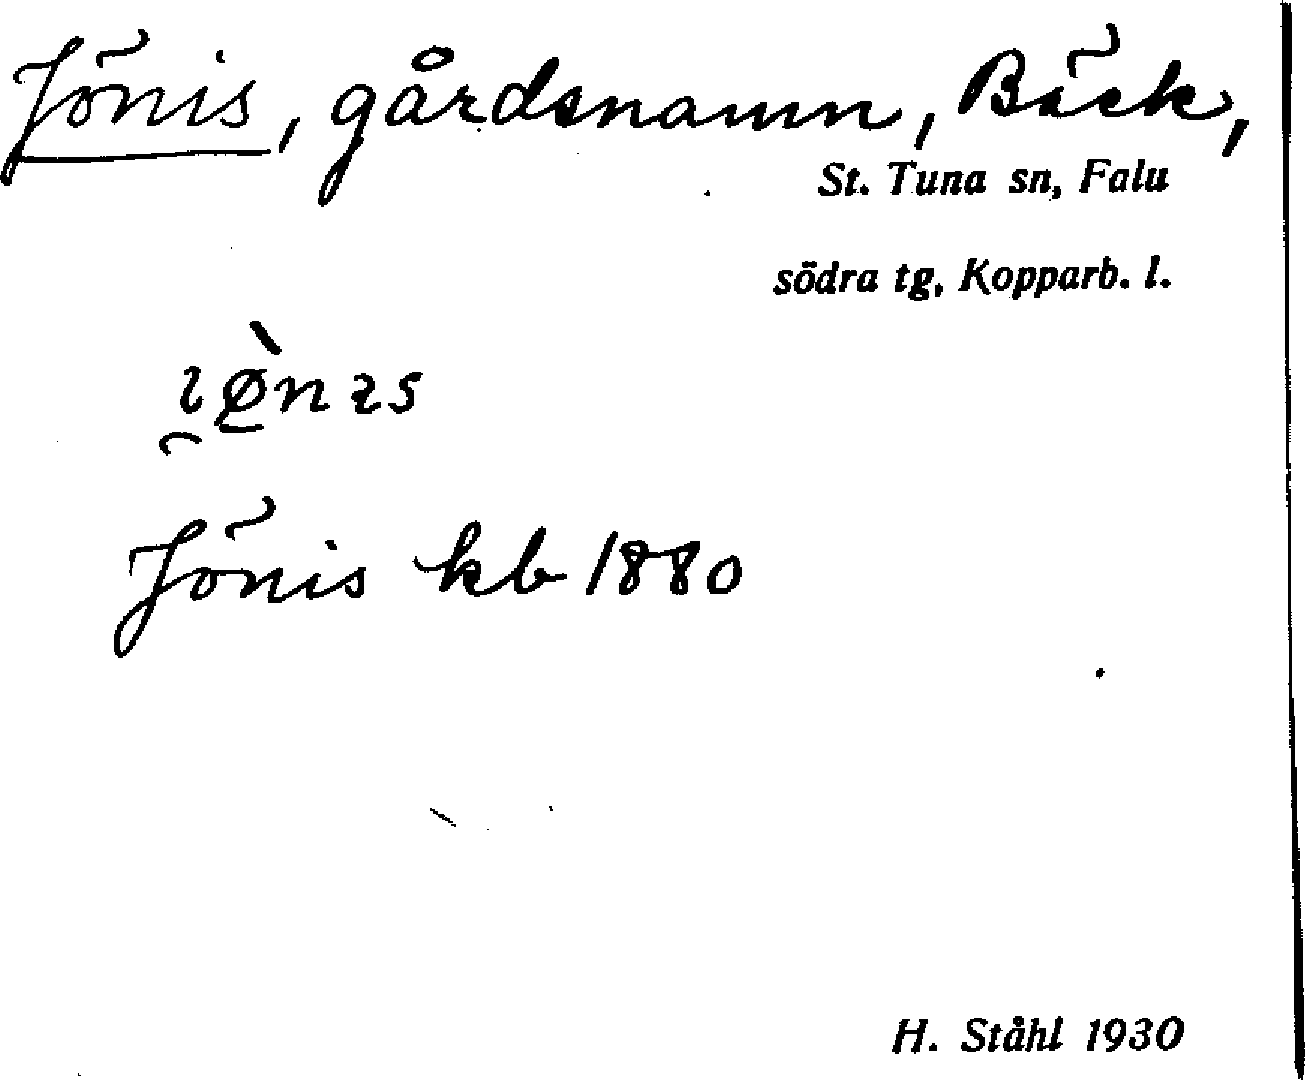 Jönis, gårdsnamn, Bäck,
St. Tuna sn, Falu
södra tg, Kopparb. l.
Jönis kb 1880
H. Ståhl 1930